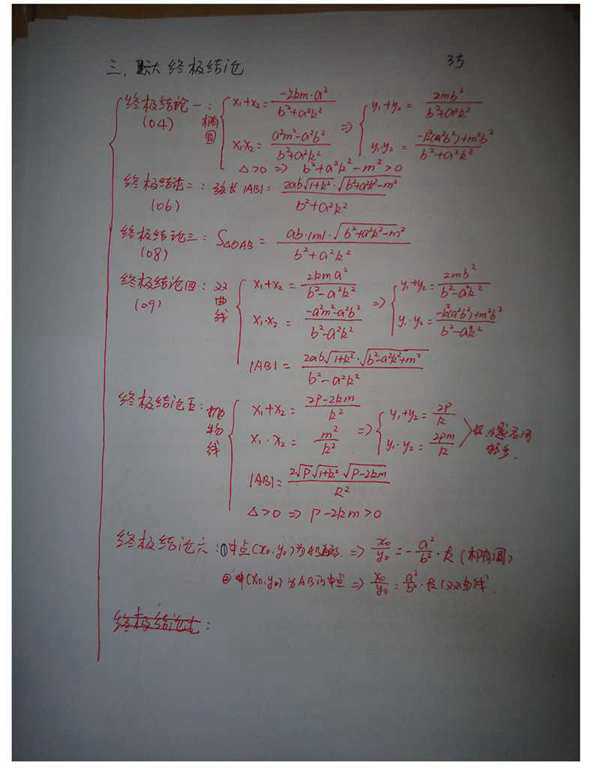 三、大终极结论 35
终极结论一：椭圆 { x₁+x₂ = -2km·a² / b²+a²k² ⇒ { y₁+y₂ = 2mb² / b²+a²k²
(04) x₁x₂ = a²m²-a²b² / b²+a²k² y₁y₂ = -k²(a²b²)+m²b² / b²+a²k²
△>0 ⇒ b²+a²k²-m²>0
终极结论二：弦长 |AB| = 2ab√1+k²·√b²+a²k²-m² / b²+a²k²
(06)
终极结论三：S△OAB = ab·|m|·√b²+a²k²-m² / b²+a²k²
(08)
终极结论四：双曲线 { x₁+x₂ = 2kma² / b²-a²k² ⇒ { y₁+y₂ = 2mb² / b²-a²k²
(09) x₁·x₂ = -a²m²-a²b² / b²-a²k² y₁·y₂ = -k²(a²b²)+m²b² / b²-a²k²
|AB| = 2ab√1+k²·√b²-a²k²+m² / b²-a²k²
终极结论五：抛物线 { x₁+x₂ = 2P-2km / k² ⇒ { y₁+y₂ = 2P / k
x₁·x₂ = m² / k² y₁·y₂ = 2Pm / k
|AB| = 2√P√1+k²√P-2km / k²
△>0 ⇒ P-2km>0
终极结论六：①中点(x₀,y₀)为AB ⇒ x₀/y₀ = -a²/b²·k (椭圆)
②(x₀,y₀)为AB的中点 ⇒ x₀/y₀ = a²/b²·k (双曲线)
终极结论七：